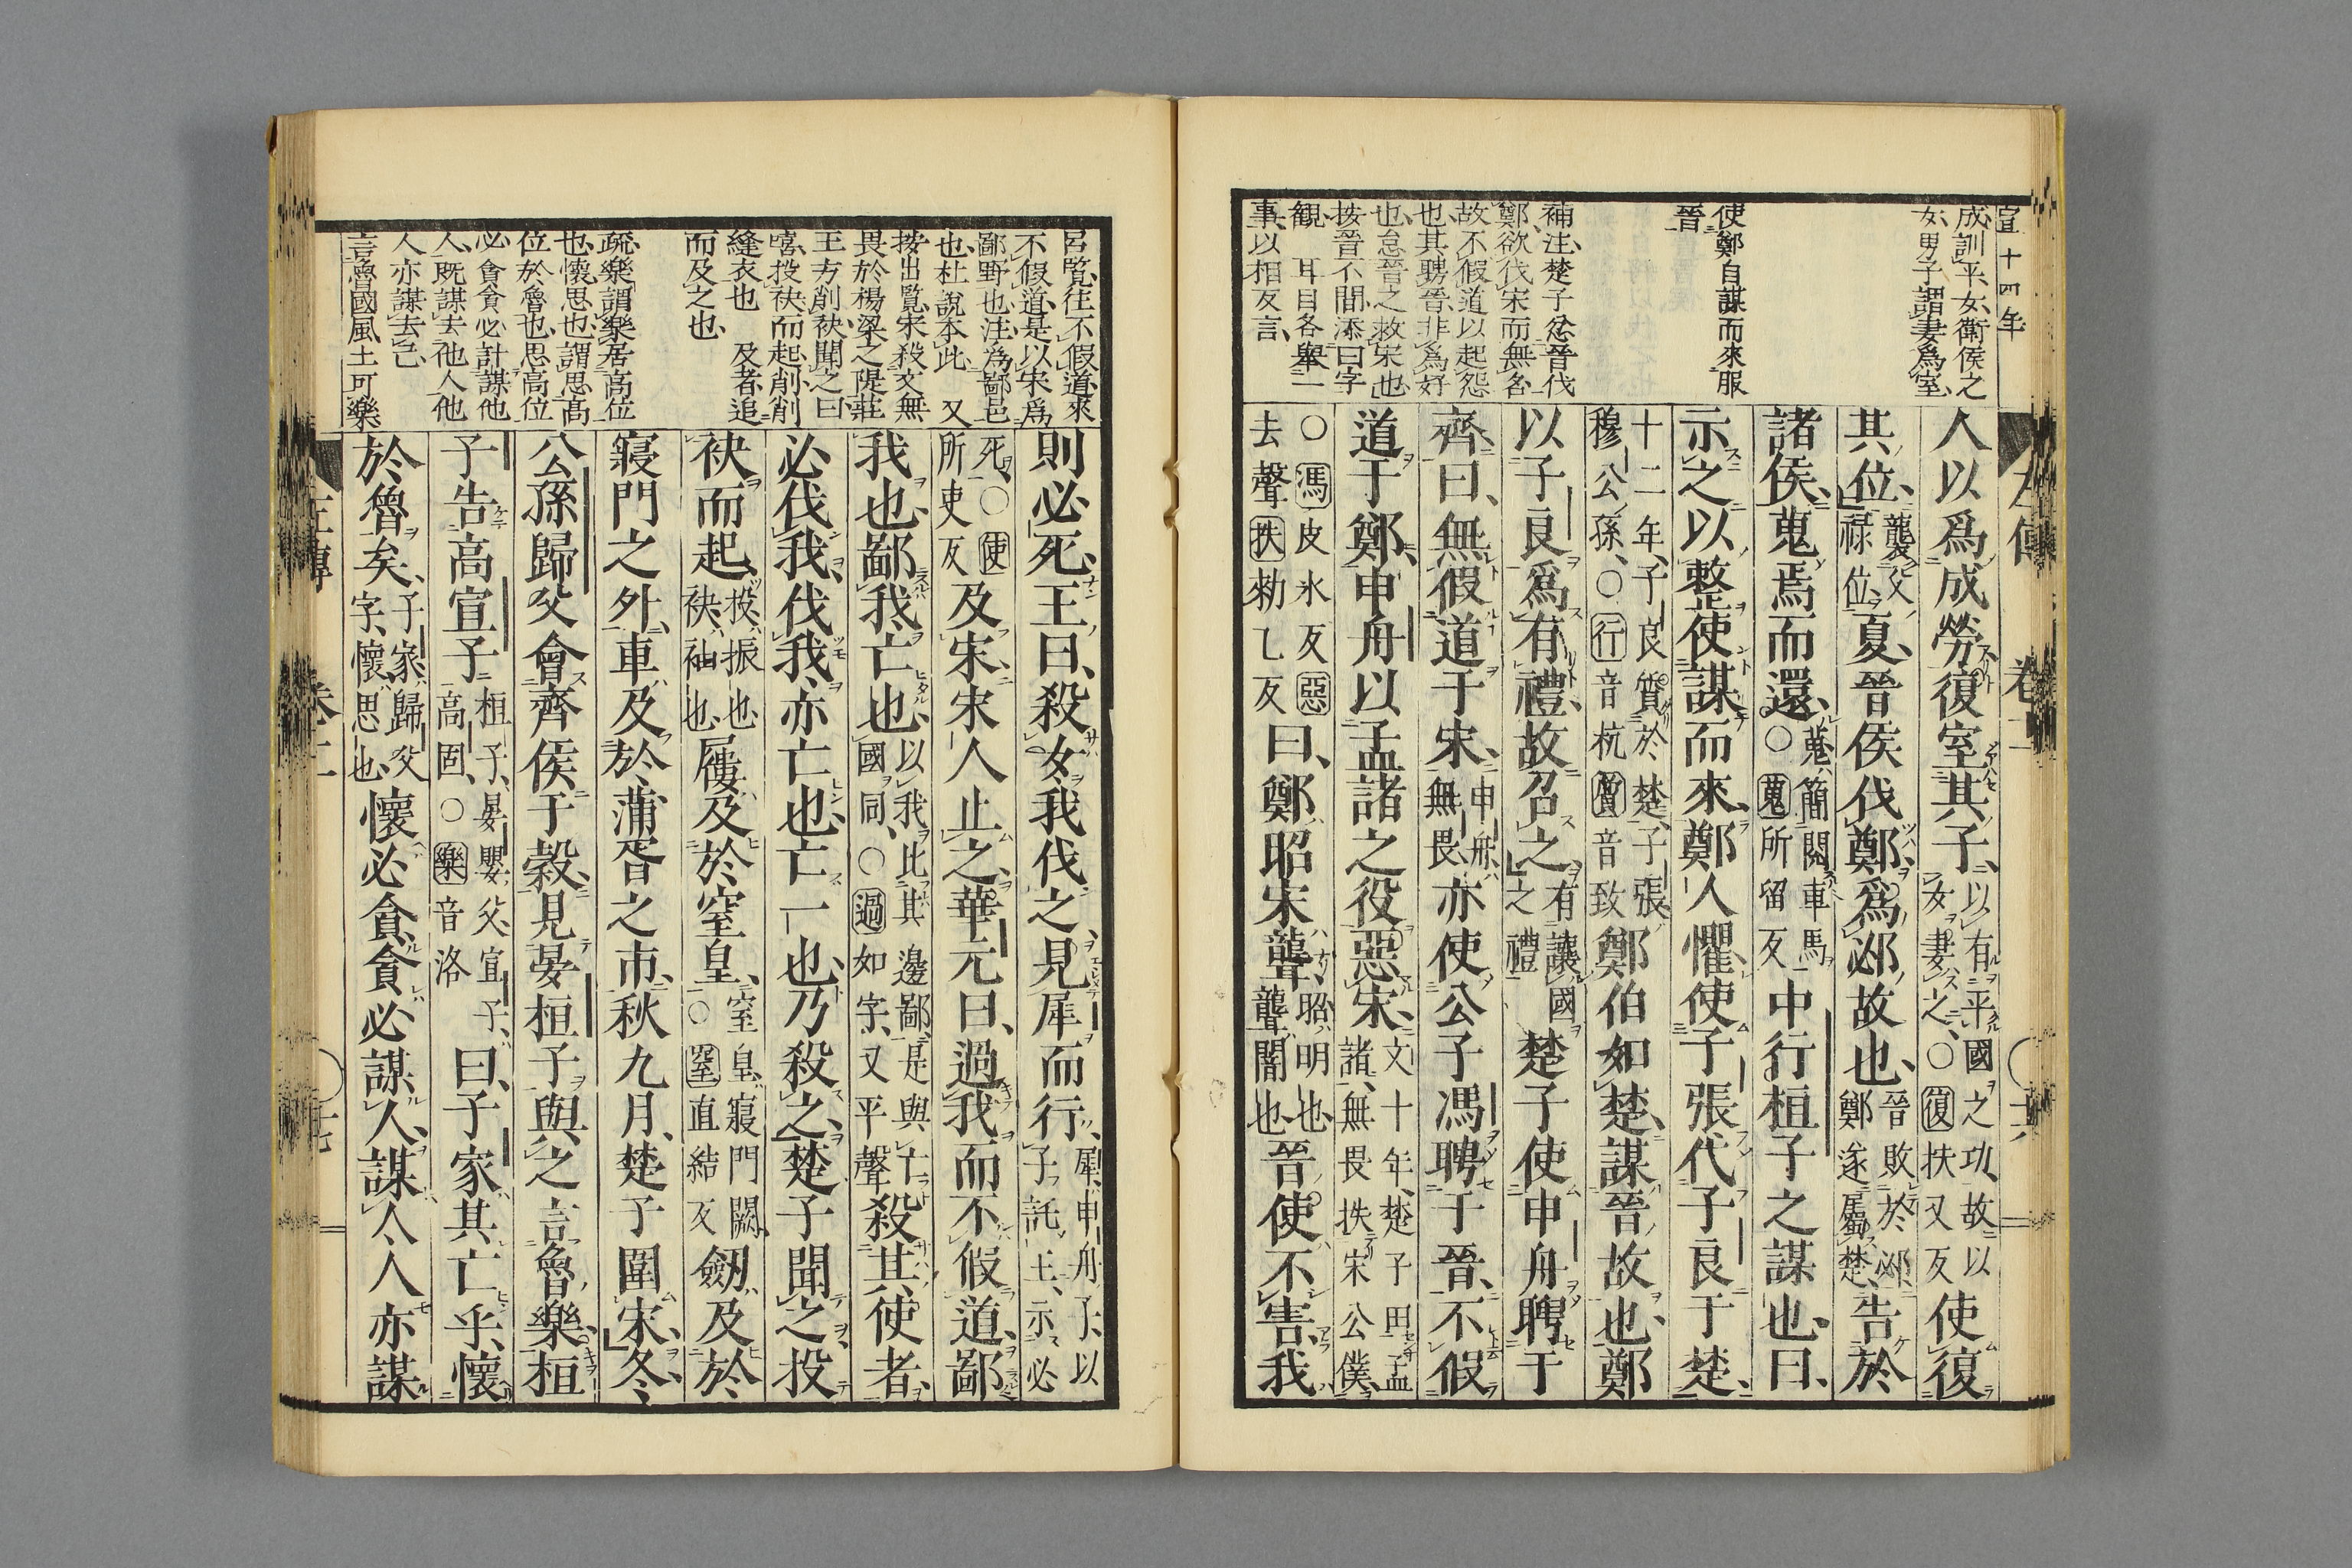 宣十四年
成、訓平、女、衛侯之
女、男子謂妻爲室、
使鄭自謀而來服
晉
補注、楚子忿晉伐
鄭、欲伐宋而無名
故不假道以起怨
也、其聘晉、非爲好
也、怠晉之救宋也
按晉不聞、添曰字
觀、耳目各擧一
事、以相反言、
左傳 卷十一 十六
人以爲成勞復室其子、以有平國之功、故以女妻之、○復扶又反使復
其位、襲父祿位、夏、晉侯伐鄭、爲邲故也、晉敗於邲、鄭遂屬楚、告於
諸侯、蒐焉而還、蒐、簡閱車馬○蒐所留反中行桓子之謀也、曰、
示之以整使謀而來、鄭人懼、使子張代子良于楚、
十二年、子良質於楚、子張、穆公孫、○行音杭質音致鄭伯如楚、謀晉故也、鄭
以子良爲有禮、故召之、有讓國之禮楚子使申舟聘于
齊、曰、無假道于宋、申舟、無畏亦使公子馮聘于晉、不假
道于鄭、申舟以孟諸之役惡宋、文十年、楚子田孟諸、無畏抶宋公僕、
○馮皮氷反惡去聲抶勑乙反曰、鄭昭宋聾、昭、明也、聾、闇也、晉使不害、我
呂覽、往不假道、來
不假道、是以宋爲
鄙野也、注、爲鄙邑
也、杜說本此 又
按出覽、宋殺文無
畏於楊梁之隄、莊
王方削袂、聞之曰
嘻、投袂而起、削削
縫衣也 及者、追
而及之也、
疏、樂、謂樂居高位
也、懷、思也、謂思高
位於魯也、思高位
必貪、貪必計謀他
人、既謀去他人、他
人亦謀去己
言魯國風土可樂
則必死、王曰、殺女、我伐之、見犀而行、犀、申舟子、以子託王、示必
死、○使所吏反及宋、宋人止之、華元曰、過我而不假道、鄙
我也、鄙我、亡也、以我比其邊鄙、是與亡國同、○過如字、又平聲殺其使者、
必伐我、伐我、亦亡也、亡一也、乃殺之、楚子聞之、投
袂而起、投、振也、袂、袖也、屨及於窒皇、窒皇、寢門闕、○窒直結反劒及於
寢門之外、車及於蒲胥之市、秋九月、楚子圍宋、冬、
公孫歸父會齊侯于穀、見晏桓子、與之言魯樂、桓
子告高宣子、桓子、晏嬰父、宣子、高固、○樂音洛曰、子家其亡乎、懷
於魯矣、子家、歸父字、懷、思也、懷必貪、貪必謀人、謀人、人亦謀
左傳 卷十一 十七